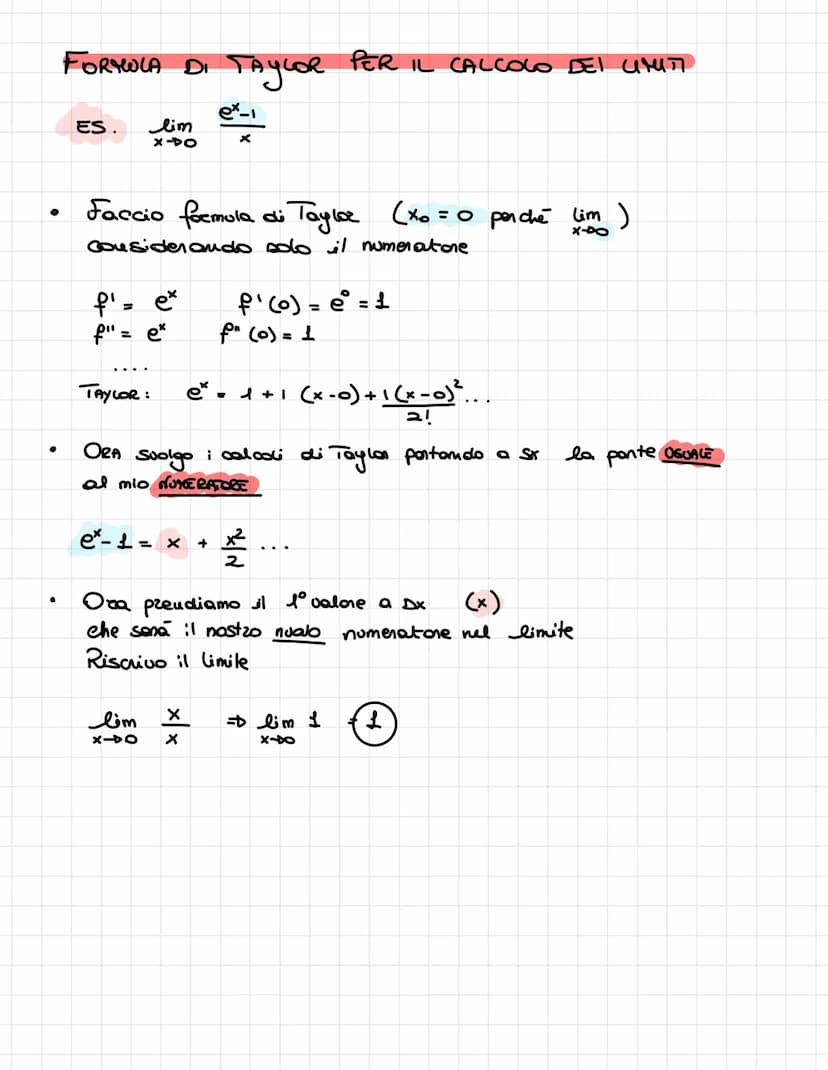 FORMULA DI TAYLOR PER IL CALCOLO DEI LIMITI
ES. lim x→0 (eˣ-1)/x
• Faccio formula di Taylor (x₀ = 0 perché lim x→0)
considerando solo il numeratore
f' = eˣ f'(0) = e⁰ = 1
f'' = eˣ f''(0) = 1
....
TAYLOR: eˣ = 1 + 1 (x-0) + 1(x-0)²/2! ...
• ORA svolgo i calcoli di Taylor portando a sx la parte UGUALE
al mio NUMERATORE
eˣ-1 = x + x²/2 ...
• Ora prendiamo il 1° valore a Dx (x)
che sarà il nostro nuovo numeratore nel limite
Riscrivo il limite
lim x→0 x/x ⇒ lim x→0 1 = 1